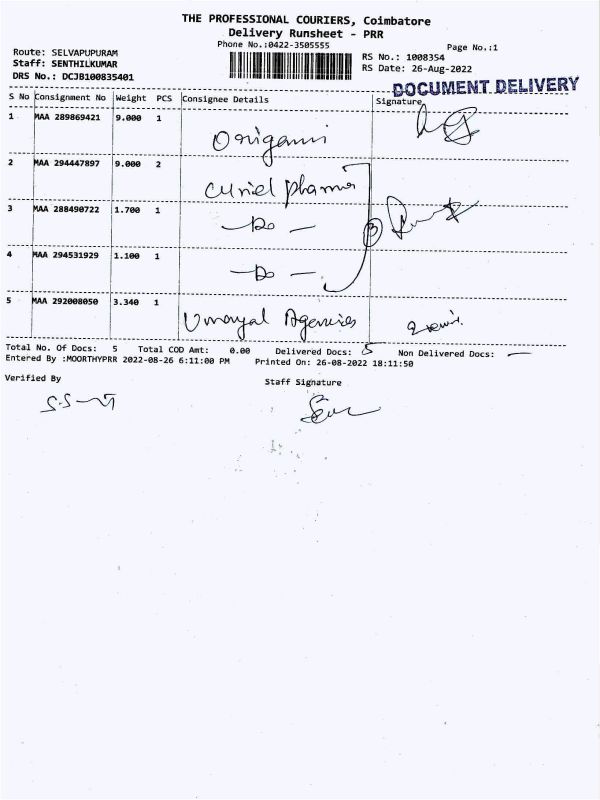 THE PROFESSIONAL COURIERS, Coimbatore
Delivery Runsheet - PRR
Phone No.:0422-3505555
Page No.:1
Route: SELVAPUPURAM
Staff: SENTHILKUMAR
DRS No.: DCJB100835401
RS No.: 1008354
RS Date: 26-Aug-2022
DOCUMENT DELIVERY
S No Consignment No Weight PCS Consignee Details Signature
1 MAA 289869421 9.000 1 Origami
2 MAA 294447897 9.000 2 Curiel pharma
3 MAA 288490722 1.700 1 — Do — 3
4 MAA 294531929 1.100 1 — Do —
5 MAA 292008050 3.340 1 Umayal Agencies
Total No. Of Docs: 5 Total COD Amt: 0.00 Delivered Docs: 5 Non Delivered Docs: —
Entered By :MOORTHYPRR 2022-08-26 6:11:00 PM Printed On: 26-08-2022 18:11:50
Verified By Staff Signature